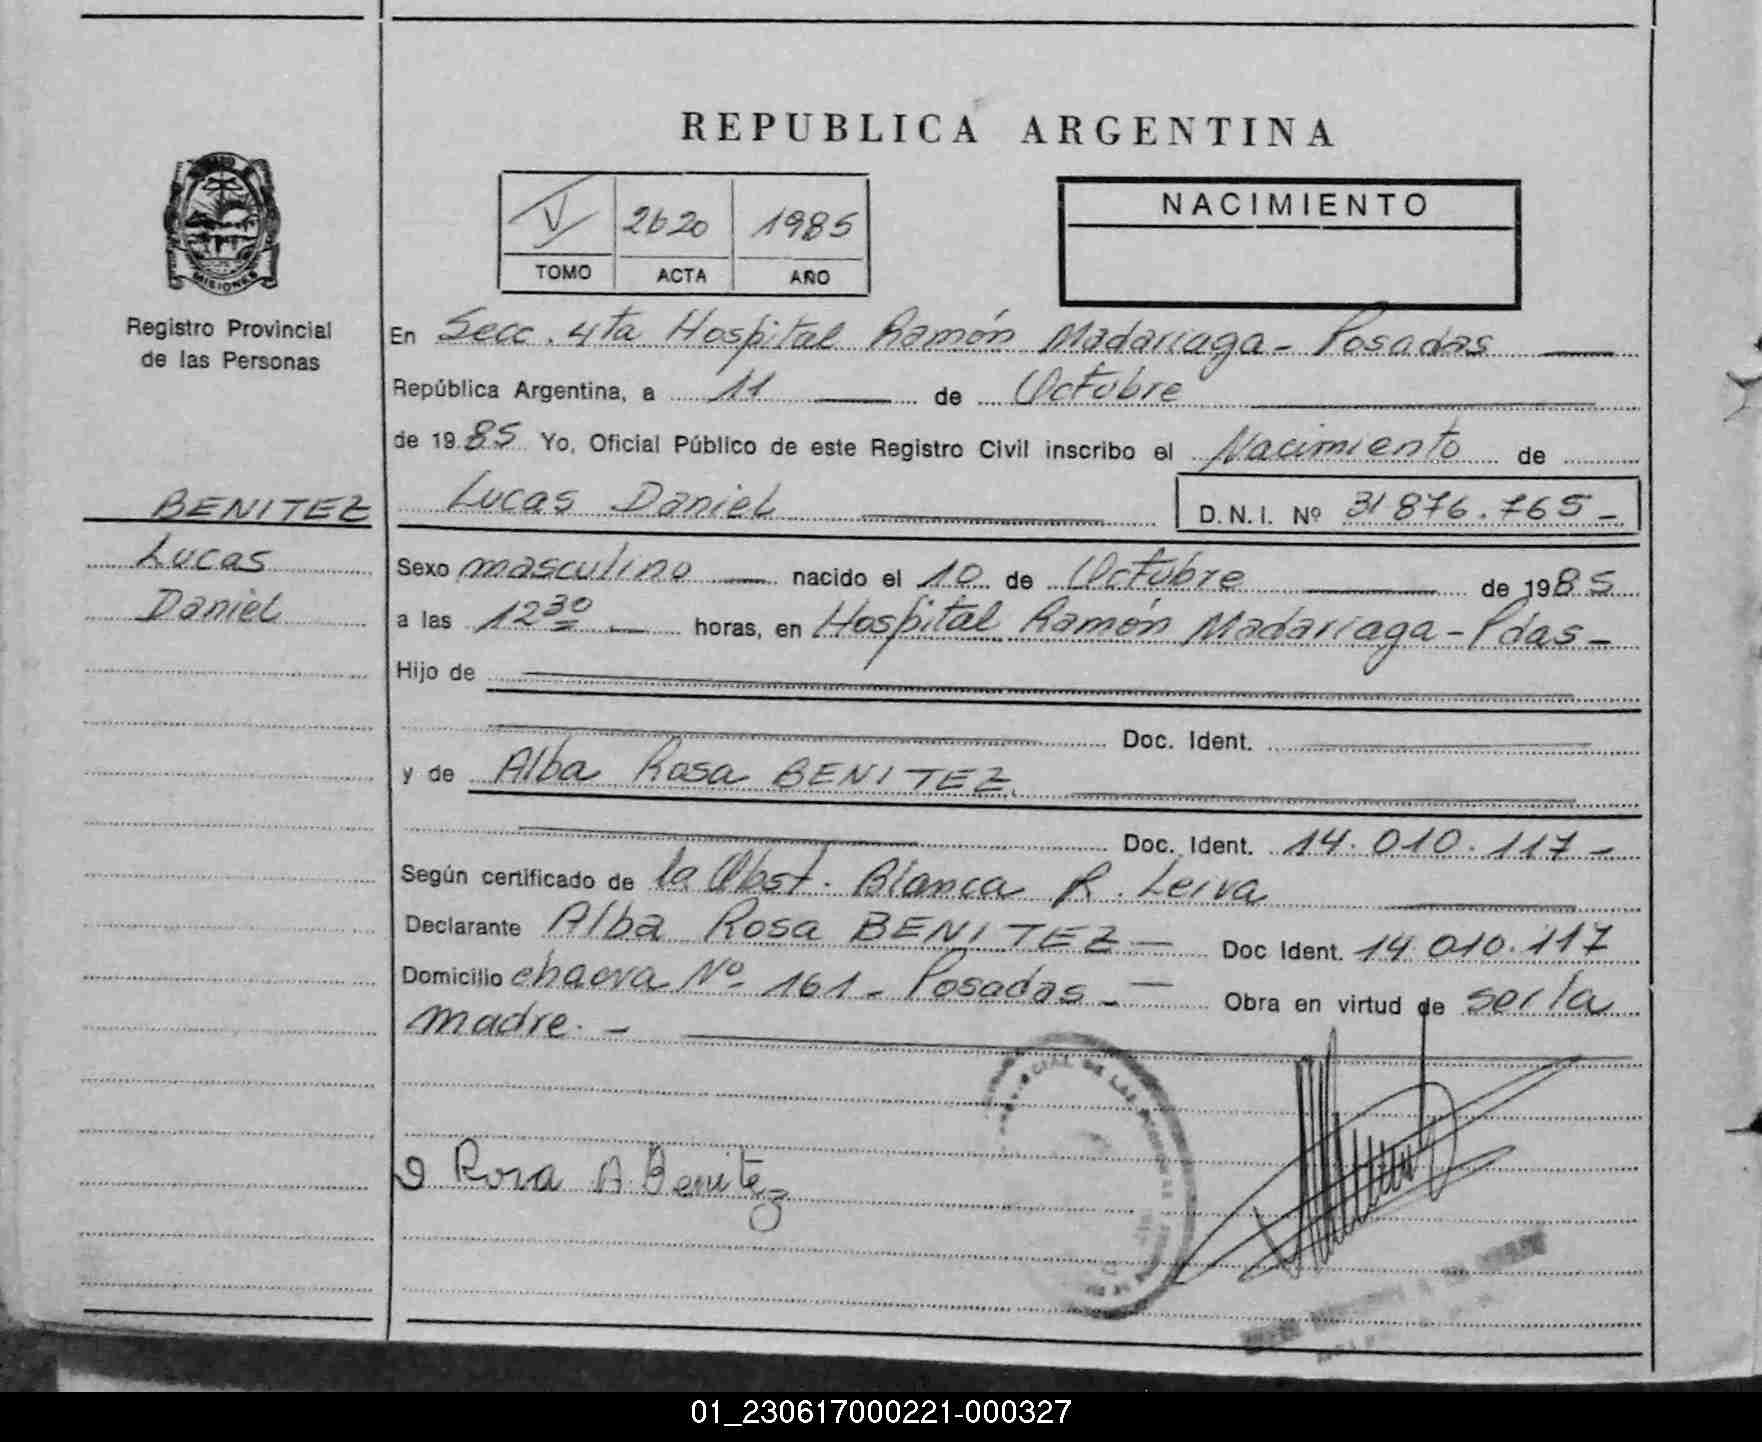 REPUBLICA ARGENTINA
MISIONES
Registro Provincial
de las Personas
V 2620 1985
TOMO ACTA AÑO
NACIMIENTO
En Secc. 4ta Hospital Ramón Madariaga - Posadas
República Argentina, a 11 de Octubre
de 1985 Yo, Oficial Público de este Registro Civil inscribo el Nacimiento de
BENITEZ
Lucas
Daniel
Lucas Daniel D.N.I. Nº 31 876.765-
Sexo masculino nacido el 10 de Octubre de 1985
a las 12 30 horas, en Hospital Ramón Madariaga - Pdas -
Hijo de
Doc. Ident.
y de Alba Rosa BENITEZ.
Doc. Ident. 14.010.117-
Según certificado de la Obst. Blanca R. Leiva
Declarante Alba Rosa BENITEZ - Doc Ident. 14.010.117
Domicilio chacra Nº 161 - Posadas - Obra en virtud de ser la
madre. -
CIAL DE LAS
Rosa A. Benitez
01_230617000221-000327